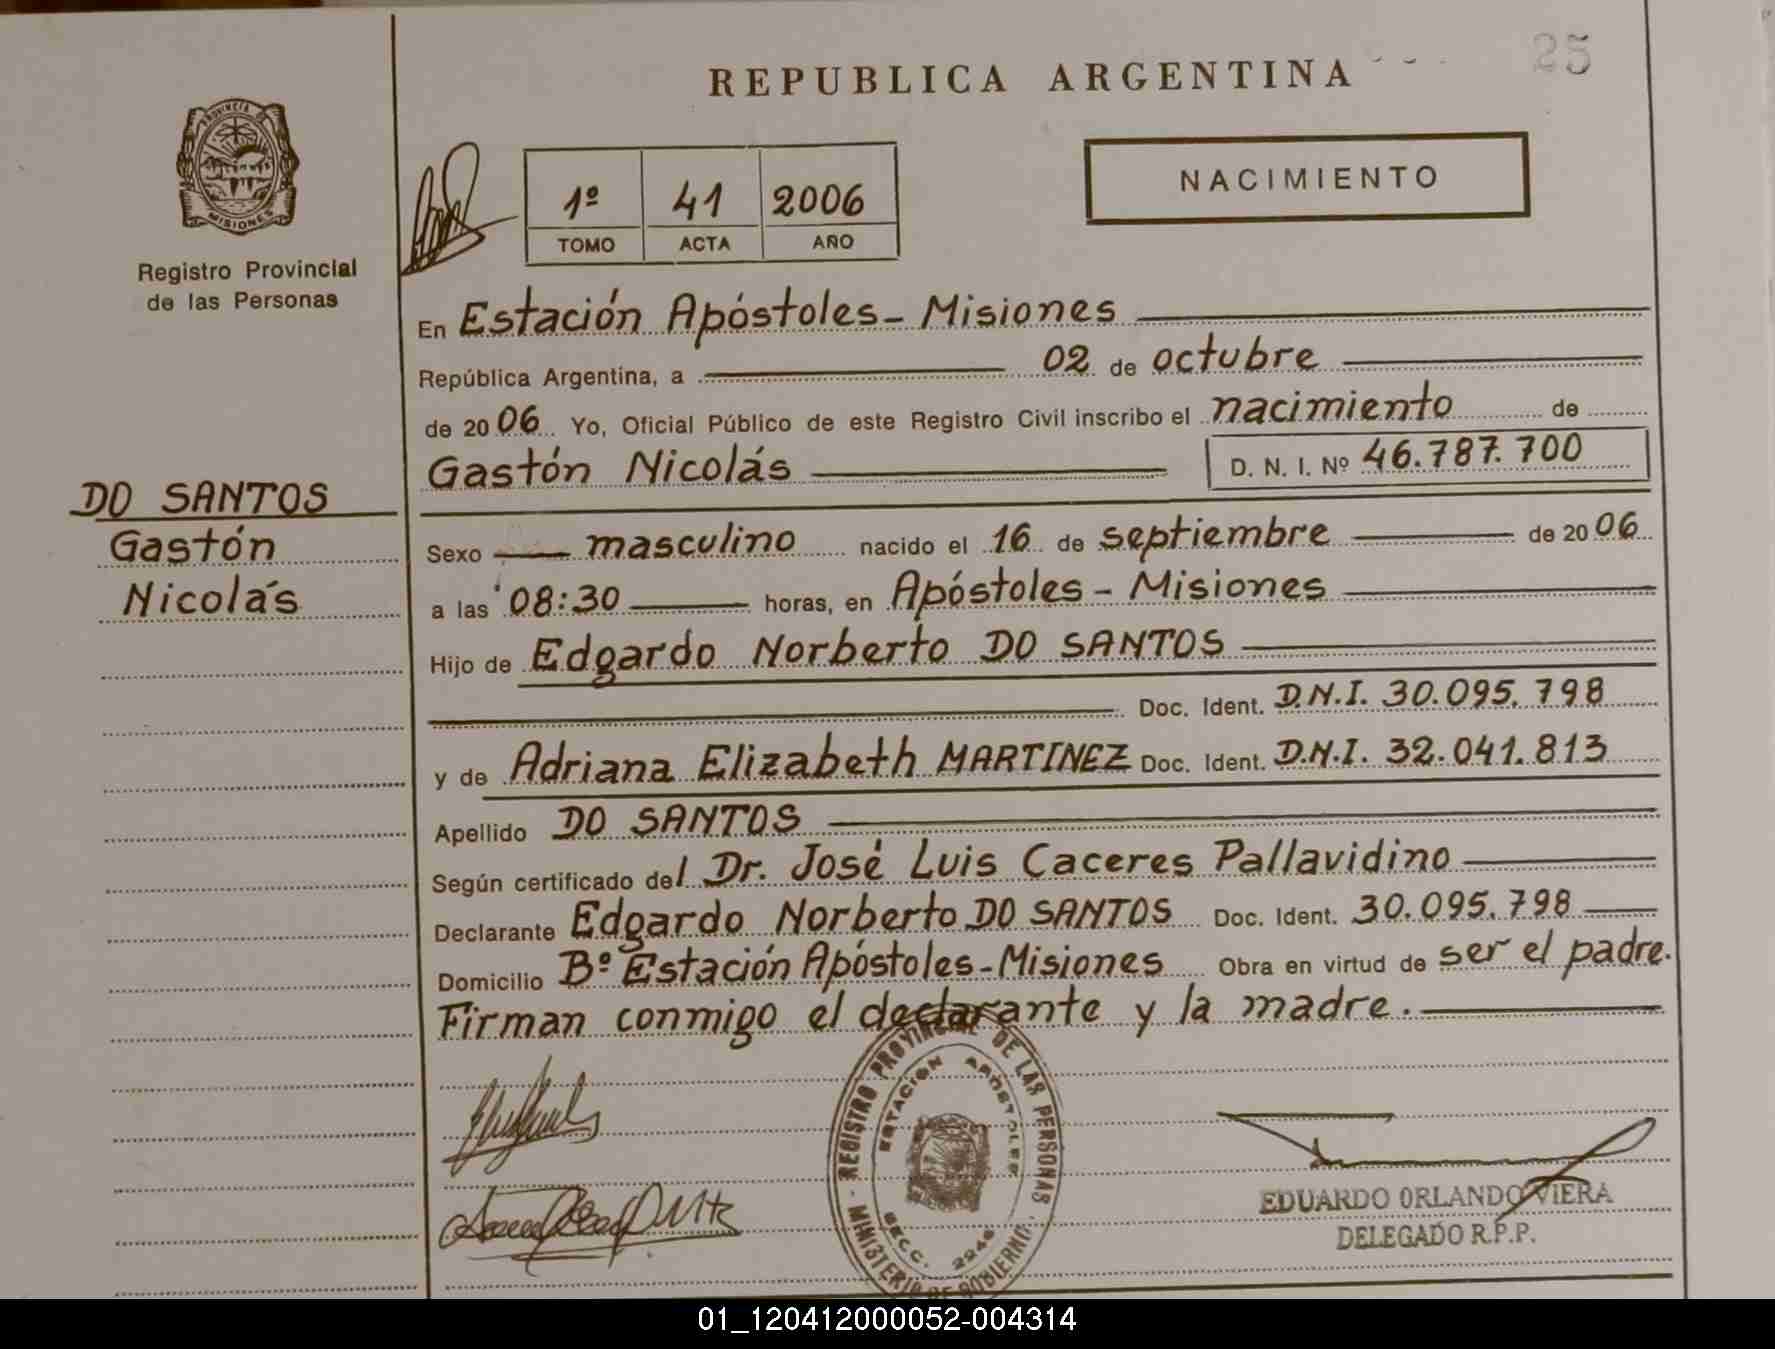 REPUBLICA ARGENTINA
25
PROVINCIA DE
MISIONES
Registro Provincial
de las Personas
1º 41 2006
TOMO ACTA AÑO
NACIMIENTO
En Estación Apóstoles - Misiones
República Argentina, a 02 de octubre
de 2006 Yo, Oficial Público de este Registro Civil inscribo el nacimiento de
Gastón Nicolás D. N. I. Nº 46.787.700
DO SANTOS
Gastón
Nicolás
Sexo masculino nacido el 16 de septiembre de 2006
a las 08:30 horas, en Apóstoles - Misiones
Hijo de Edgardo Norberto DO SANTOS
Doc. Ident. D.N.I. 30.095.798
y de Adriana Elizabeth MARTINEZ Doc. Ident. D.N.I. 32.041.813
Apellido DO SANTOS
Según certificado del Dr. José Luis Caceres Pallavidino
Declarante Edgardo Norberto DO SANTOS Doc. Ident. 30.095.798
Domicilio Bº Estación Apóstoles - Misiones Obra en virtud de ser el padre.
Firman conmigo el declarante y la madre.
REGISTRO PROVINCIAL DE LAS PERSONAS
ESTACION APOSTOLES
SECC. 2246
MINISTERIO DE GOBIERNO
EDUARDO ORLANDO VIERA
DELEGADO R.P.P.
01_120412000052-004314